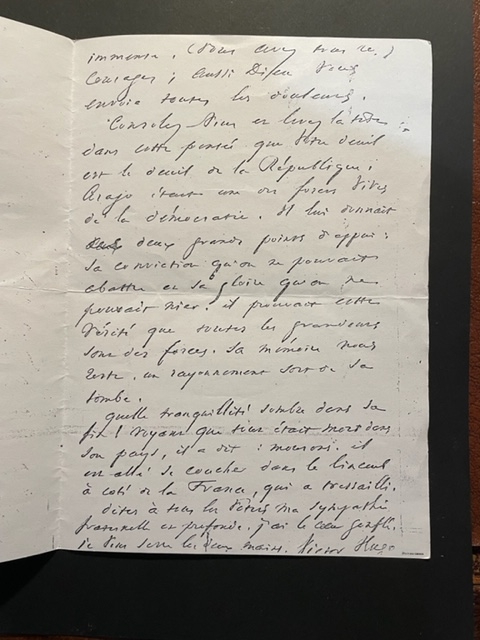 immense. (Vous avez tous les)
Courages ; aussi Dieu vous
envoie toutes les douleurs.
Consolez vous et levez la tête
dans cette pensée que votre deuil
est le deuil de la République ;
Arago était une des forces vives
de la démocratie. Il lui donnait
deux grands points d'appui :
sa conviction qu'on ne pouvait
abattre et sa gloire qu'on ne
pouvait nier. il prouvait cette
vérité que toutes les grandeurs
sont des forces. Sa mémoire nous
reste. un rayonnement sort de sa
tombe.
quelle tranquillité sombre dans sa
fin ! voyant que tout était mort dans
son pays, il a dit : mourons. il
est allé se coucher dans le linceul
à côté de la France, qui a tressailli.
dites à tous les vôtres ma sympathie
fraternelle et profonde. j'ai le cœur gonflé.
je vous serre les deux mains. Victor Hugo